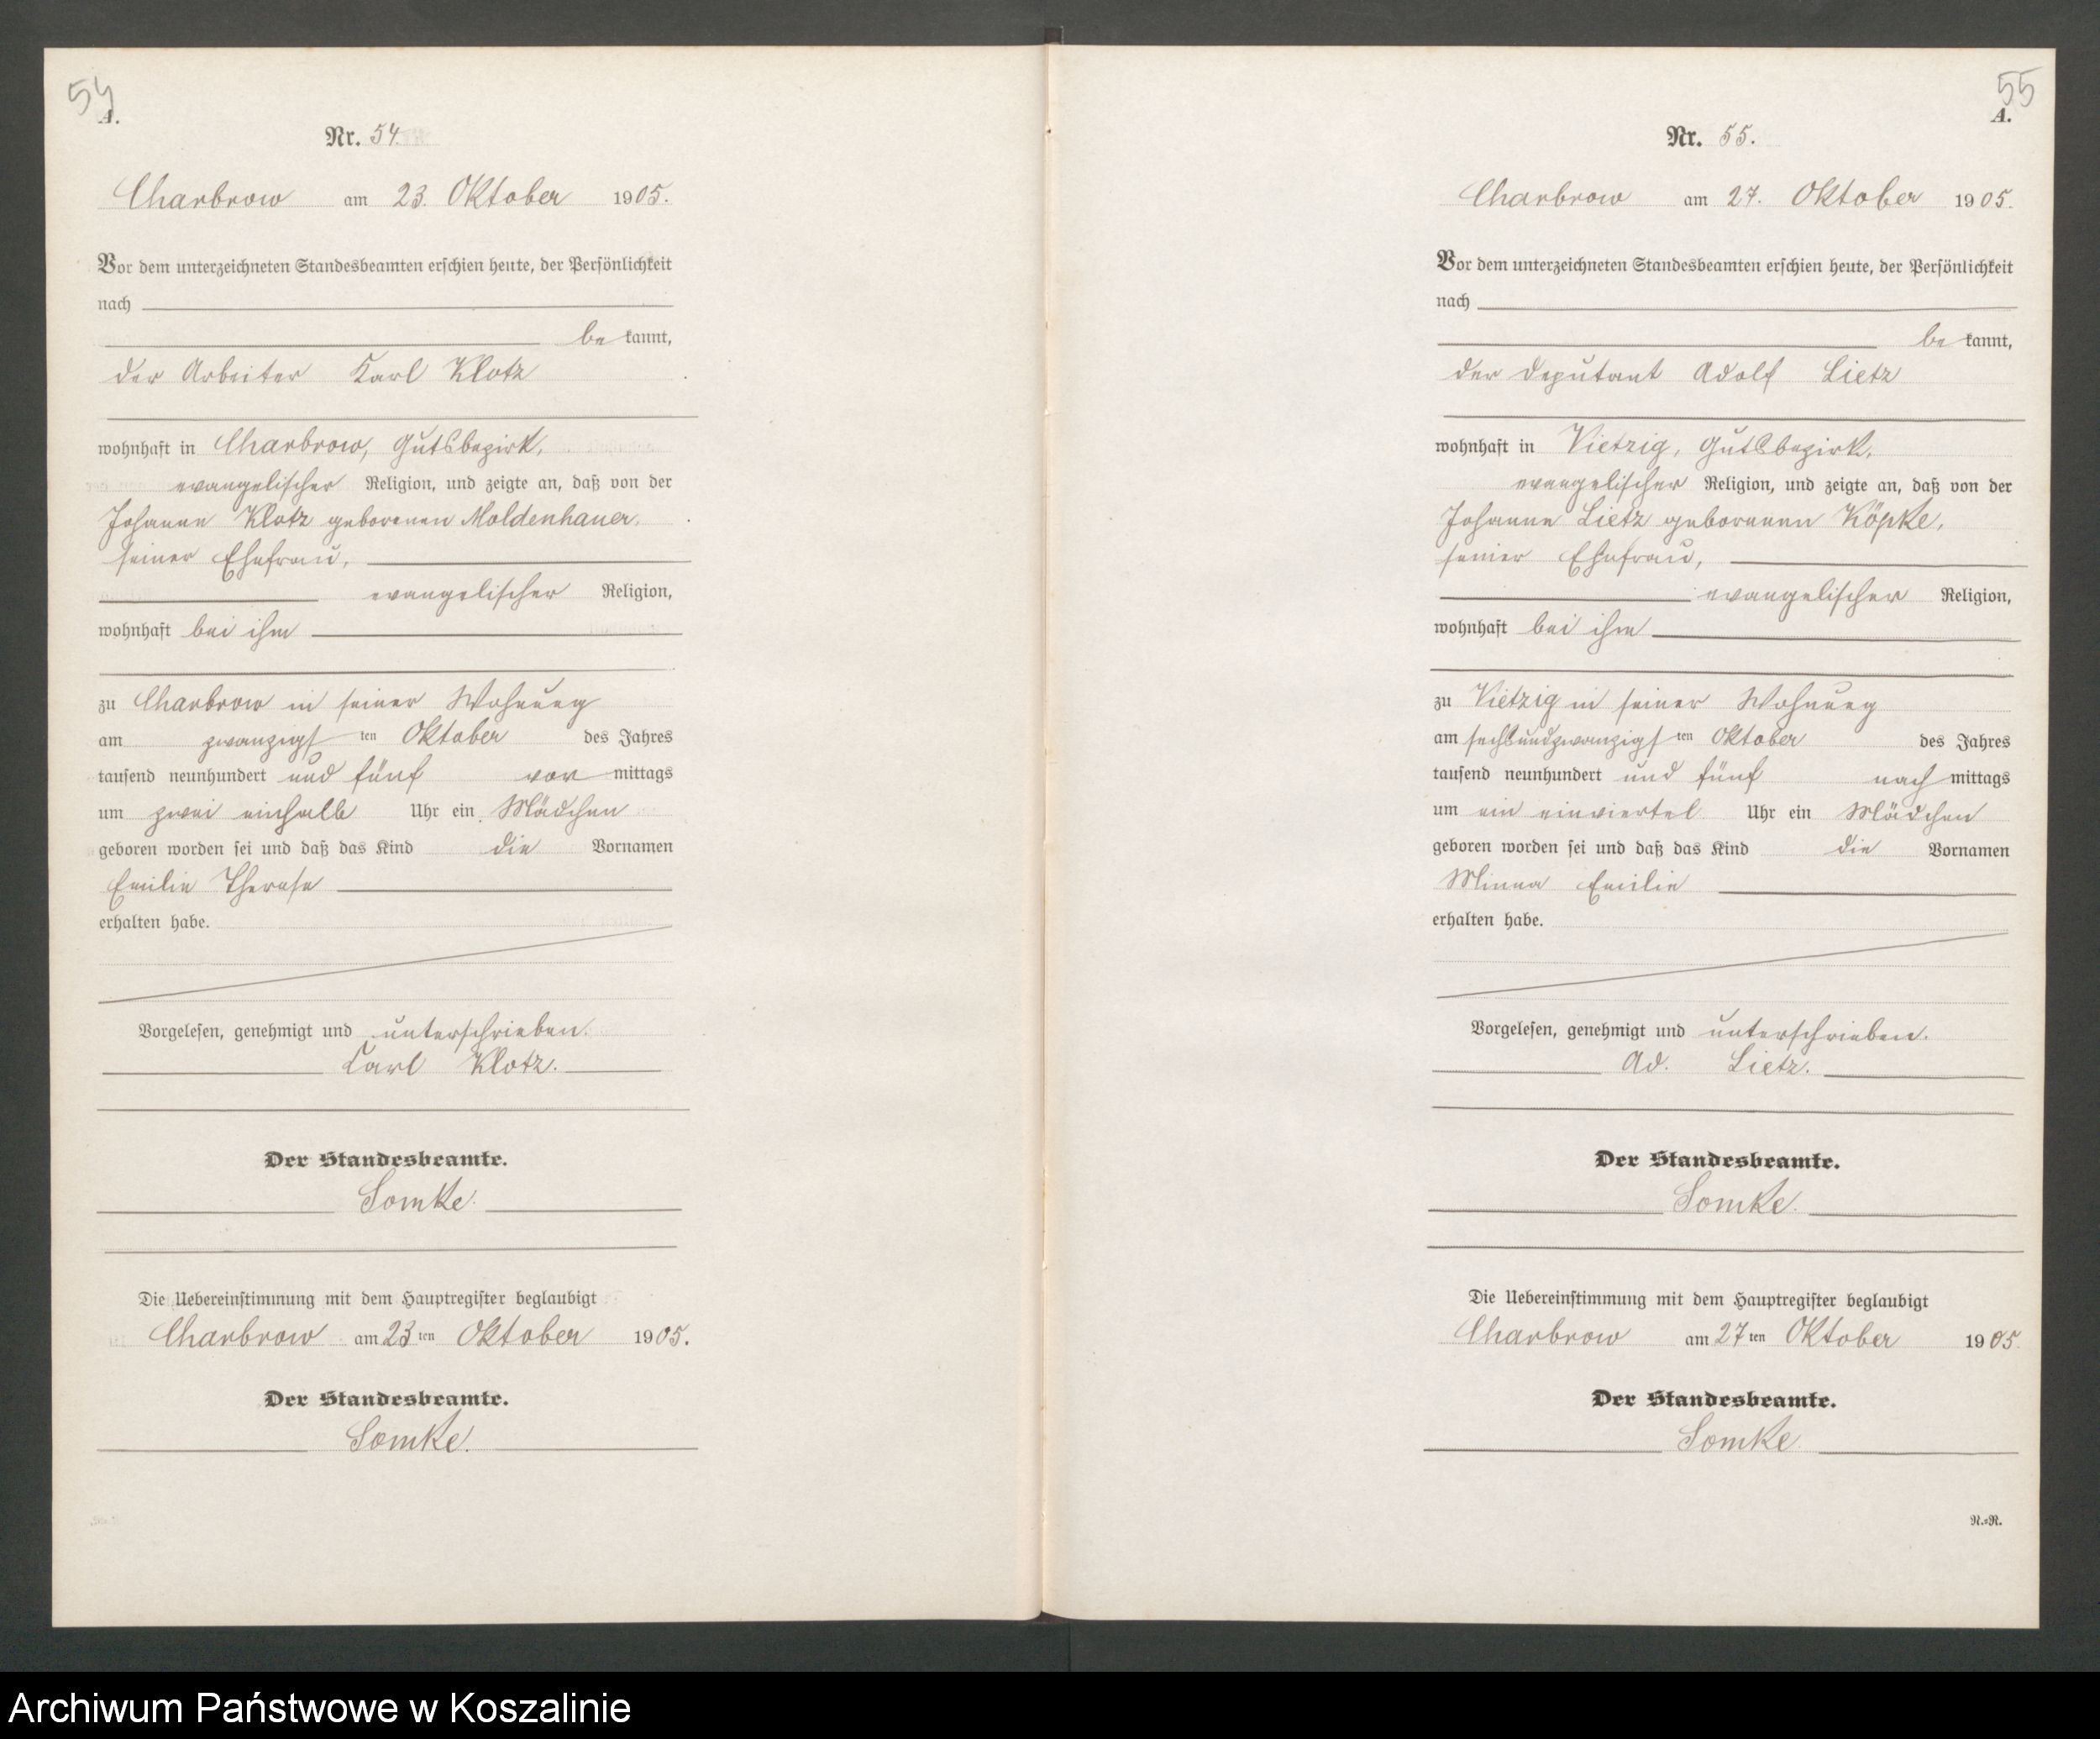 54
A.
Nr. 54.
Charbrow am 23. Oktober 1905.
Vor dem unterzeichneten Standesbeamten erschien heute, der Persönlichkeit
nach
be kannt,
der Arbeiter Karl Klotz
wohnhaft in Charbrow, Gutsbezirk,
evangelischer Religion, und zeigte an, daß von der
Johanne Klotz geborenen Moldenhauer,
seiner Ehefrau,
evangelischer Religion,
wohnhaft bei ihm
zu Charbrow in seiner Wohnung
am zwanzigs ten Oktober des Jahres
tausend neunhundert und fünf vor mittags
um zwei einhalb Uhr ein Mädchen
geboren worden sei und daß das Kind die Vornamen
Emilie Therese
erhalten habe.
Vorgelesen, genehmigt und unterschrieben.
Carl Klotz.
Der Standesbeamte.
Somke.
Die Uebereinstimmung mit dem Hauptregister beglaubigt
Charbrow am 23 ten Oktober 1905.
Der Standesbeamte.
Somke.
55
A.
Nr. 55.
Charbrow am 27. Oktober 1905.
Vor dem unterzeichneten Standesbeamten erschien heute, der Persönlichkeit
nach
be kannt,
der Deputant Adolf Lietz
wohnhaft in Vietzig, Gutsbezirk,
evangelischer Religion, und zeigte an, daß von der
Johanne Lietz geborenen Köpke,
seiner Ehefrau,
evangelischer Religion,
wohnhaft bei ihm
zu Vietzig in seiner Wohnung
am sechsundzwanzigs ten Oktober des Jahres
tausend neunhundert und fünf nach mittags
um ein einviertel Uhr ein Mädchen
geboren worden sei und daß das Kind die Vornamen
Minna Emilie
erhalten habe.
Vorgelesen, genehmigt und unterschrieben.
Ad. Lietz.
Der Standesbeamte.
Somke.
Die Uebereinstimmung mit dem Hauptregister beglaubigt
Charbrow am 27 ten Oktober 1905.
Der Standesbeamte.
Somke
R.=R.
Archiwum Państwowe w Koszalinie